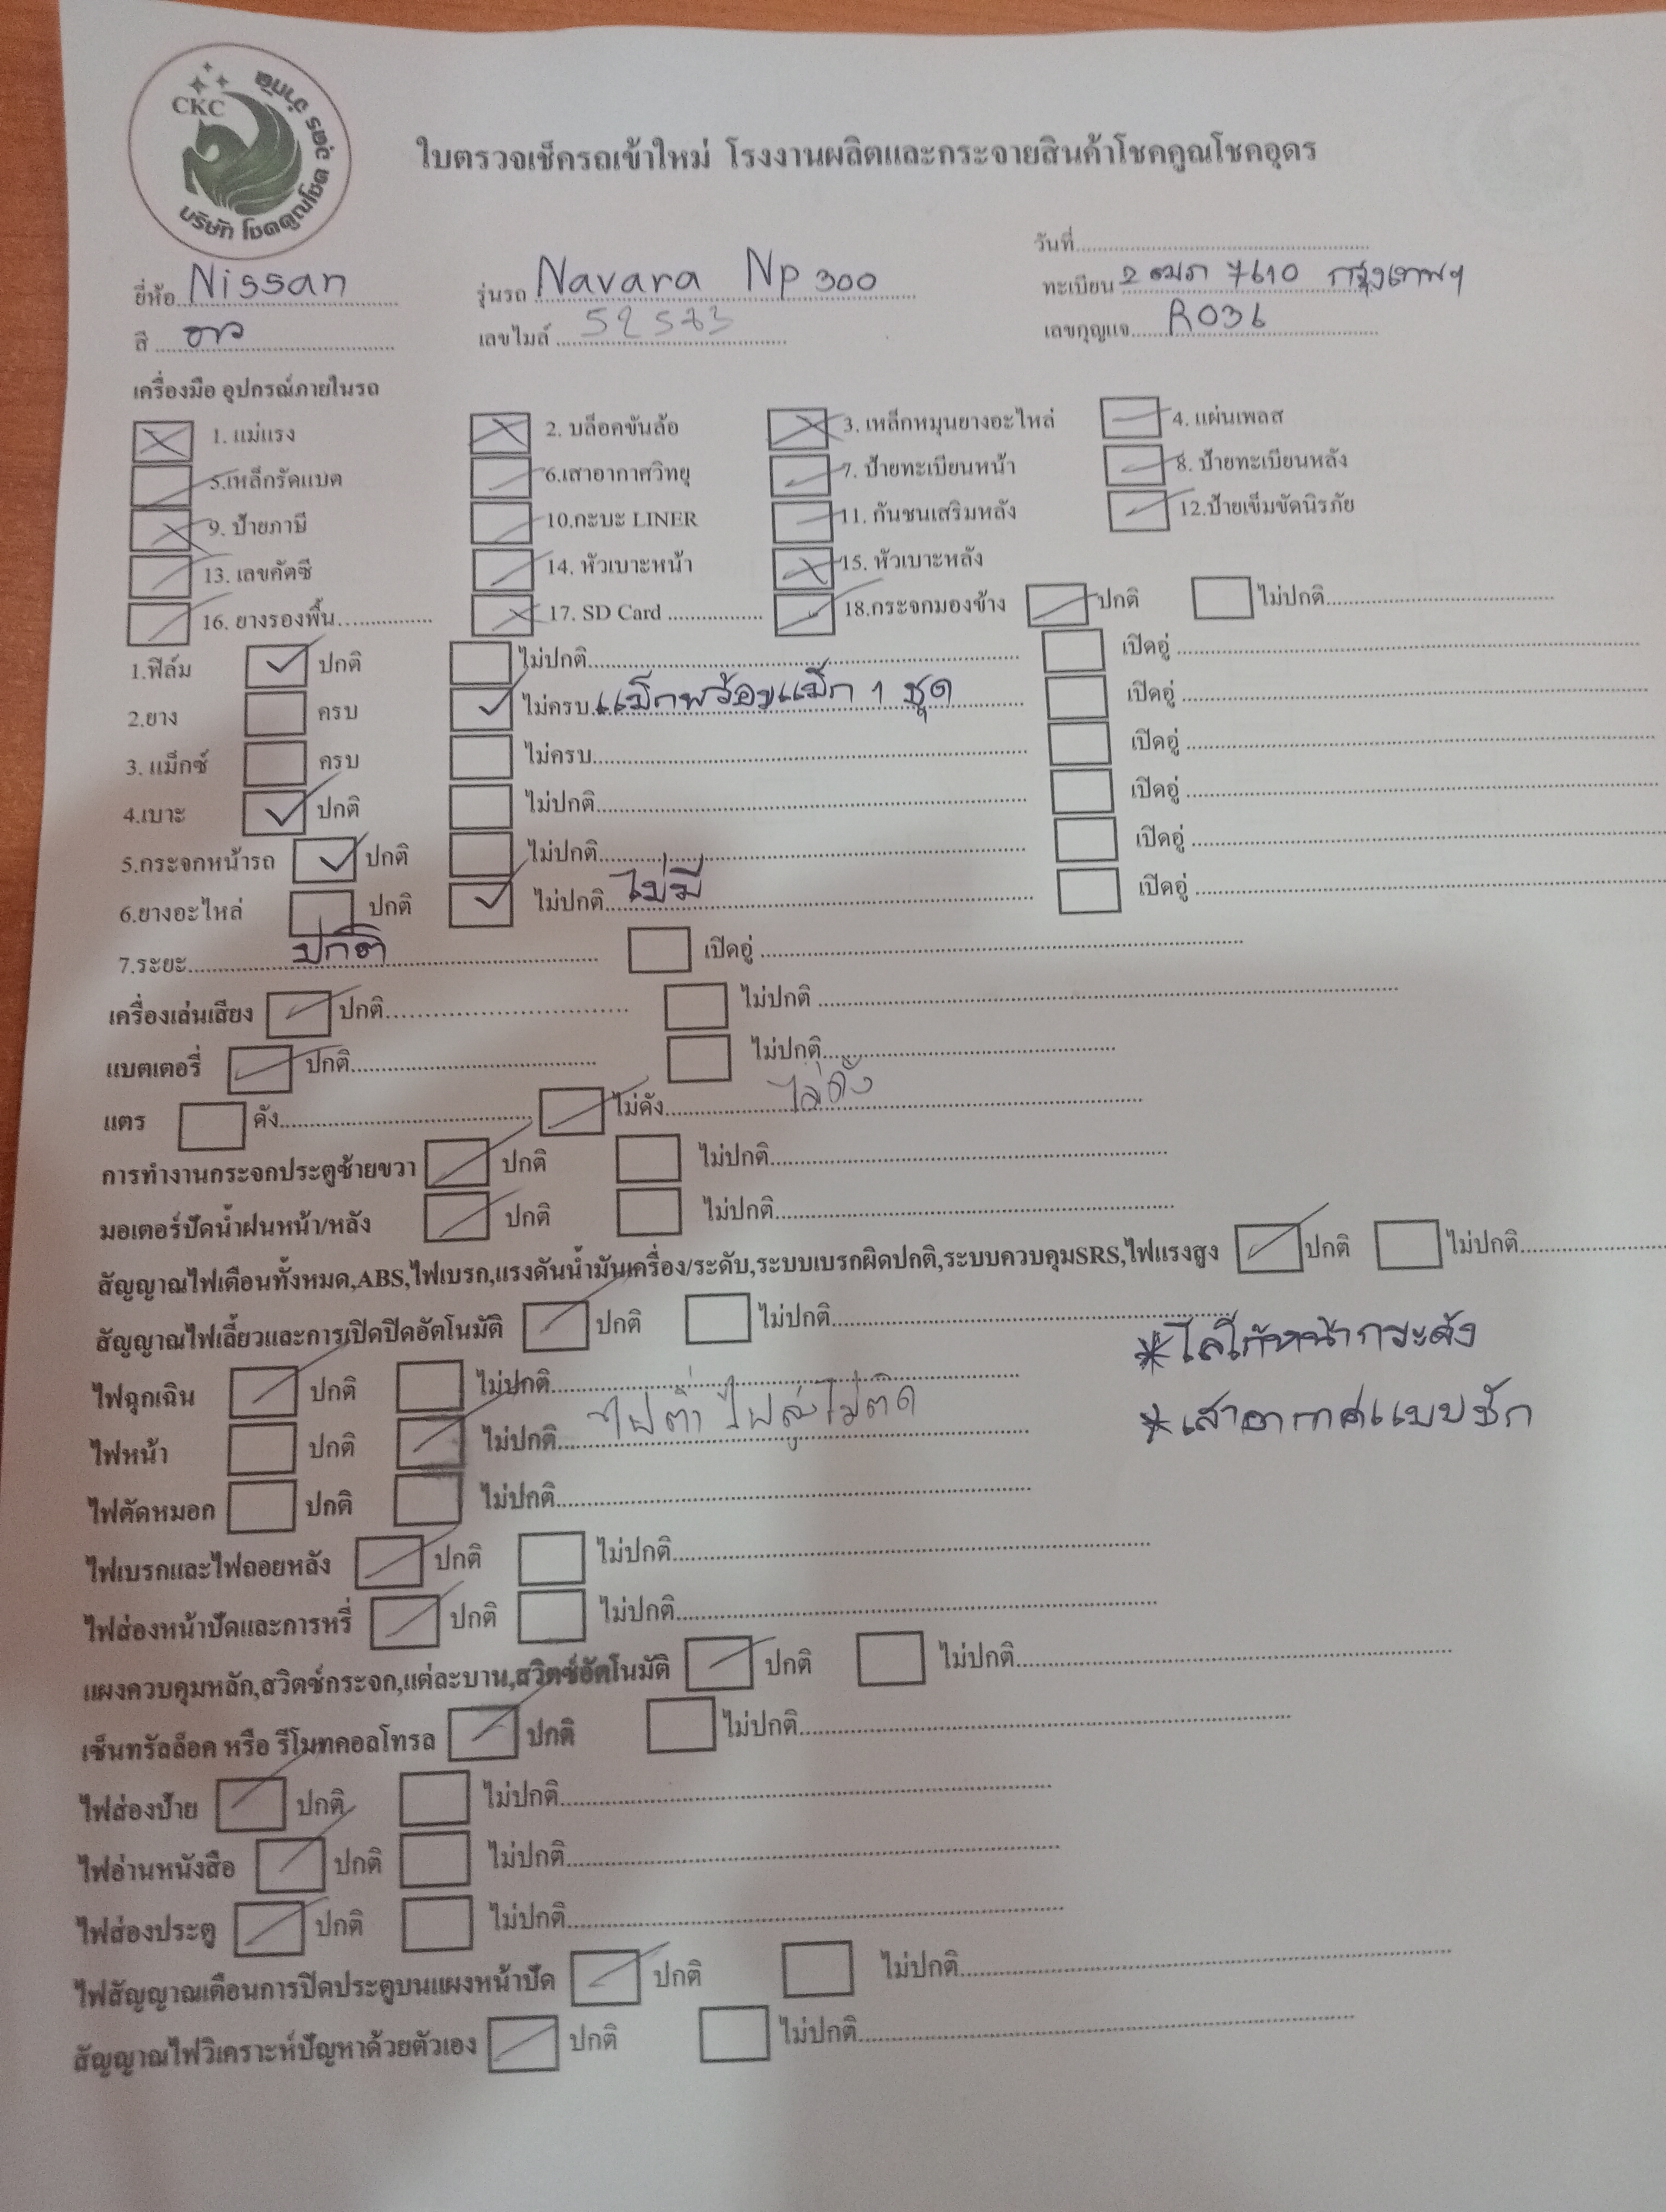 CKC
บริษัท โชคคูณโชค อุดร จำกัด
ใบตรวจเช็ครถเข้าใหม่ โรงงานผลิตและกระจายสินค้าโชคคูณโชคอุดร
วันที่
ยี่ห้อ Nissan รุ่นรถ Navara Np 300 ทะเบียน 2 7610 กรุงเทพฯ
สี เลขไมล์ 52573 เลขกุญแจ R036
เครื่องมือ อุปกรณ์ภายในรถ
1. แม่แรง 2. บล็อคขันล้อ 3. เหล็กหมุนยางอะไหล่ 4. แผ่นเพลส
5.เหล็กรัดแบต 6.เสาอากาศวิทยุ 7. ป้ายทะเบียนหน้า 8. ป้ายทะเบียนหลัง
9. ป้ายภาษี 10.กะบะ LINER 11. กันชนเสริมหลัง 12.ป้ายเข็มขัดนิรภัย
13. เลขคัตซี 14. หัวเบาะหน้า 15. หัวเบาะหลัง
16. ยางรองพื้น 17. SD Card 18.กระจกมองข้าง ปกติ ไม่ปกติ
1.ฟิล์ม ปกติ ไม่ปกติ เปิดอู่
2.ยาง ครบ ไม่ครบ แม็กพร้อมแม็ก 1 ชุด เปิดอู่
3. แม็กซ์ ครบ ไม่ครบ เปิดอู่
4.เบาะ ปกติ ไม่ปกติ เปิดอู่
5.กระจกหน้ารถ ปกติ ไม่ปกติ เปิดอู่
6.ยางอะไหล่ ปกติ ไม่ปกติ ไม่มี เปิดอู่
7.ระยะ ปกติ เปิดอู่
เครื่องเล่นเสียง ปกติ ไม่ปกติ
แบตเตอรี่ ปกติ ไม่ปกติ
แตร ดัง ไม่ดัง ไม่ดัง
การทำงานกระจกประตูซ้ายขวา ปกติ ไม่ปกติ
มอเตอร์ปัดน้ำฝนหน้า/หลัง ปกติ ไม่ปกติ
สัญญาณไฟเตือนทั้งหมด,ABS,ไฟเบรก,แรงดันน้ำมันเครื่อง/ระดับ,ระบบเบรกผิดปกติ,ระบบควบคุมSRS,ไฟแรงสูง ปกติ ไม่ปกติ
สัญญาณไฟเลี้ยวและการเปิดปิดอัตโนมัติ ปกติ ไม่ปกติ
*โลโก้หน้ากระจัง
ไฟฉุกเฉิน ปกติ ไม่ปกติ
*เสาอากาศแบบชัก
ไฟหน้า ปกติ ไม่ปกติ ไฟต่ำ ไฟสูงไม่ติด
ไฟตัดหมอก ปกติ ไม่ปกติ
ไฟเบรกและไฟถอยหลัง ปกติ ไม่ปกติ
ไฟส่องหน้าปัดและการหรี่ ปกติ ไม่ปกติ
แผงควบคุมหลัก,สวิตช์กระจก,แต่ละบาน,สวิตช์อัตโนมัติ ปกติ ไม่ปกติ
เซ็นทรัลล็อค หรือ รีโมทคอลโทรล ปกติ ไม่ปกติ
ไฟส่องป้าย ปกติ ไม่ปกติ
ไฟอ่านหนังสือ ปกติ ไม่ปกติ
ไฟส่องประตู ปกติ ไม่ปกติ
ไฟสัญญาณเตือนการปิดประตูบนแผงหน้าปัด ปกติ ไม่ปกติ
สัญญาณไฟวิเคราะห์ปัญหาด้วยตัวเอง ปกติ ไม่ปกติ